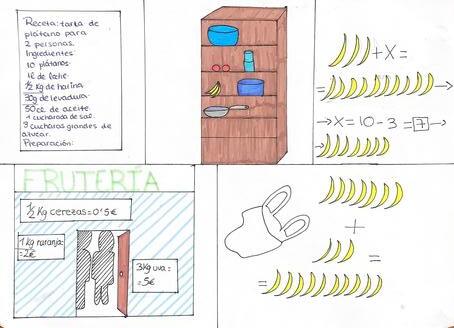 Receta: tarta de
plátano para
2 personas.
Ingredientes:
10 plátanos
1l de leche.
1/2 kg de harina
30g de levadura.
50cl de aceite
1 cucharada de sal.
3 cucharas grandes de
azúcar.
Preparación:
+X=
=
→X=10-3=7→
→
FRUTERÍA
1/2 Kg cerezas=0'5€
1kg naranja:
=2€
3kg uva:
=5€
+
=
=